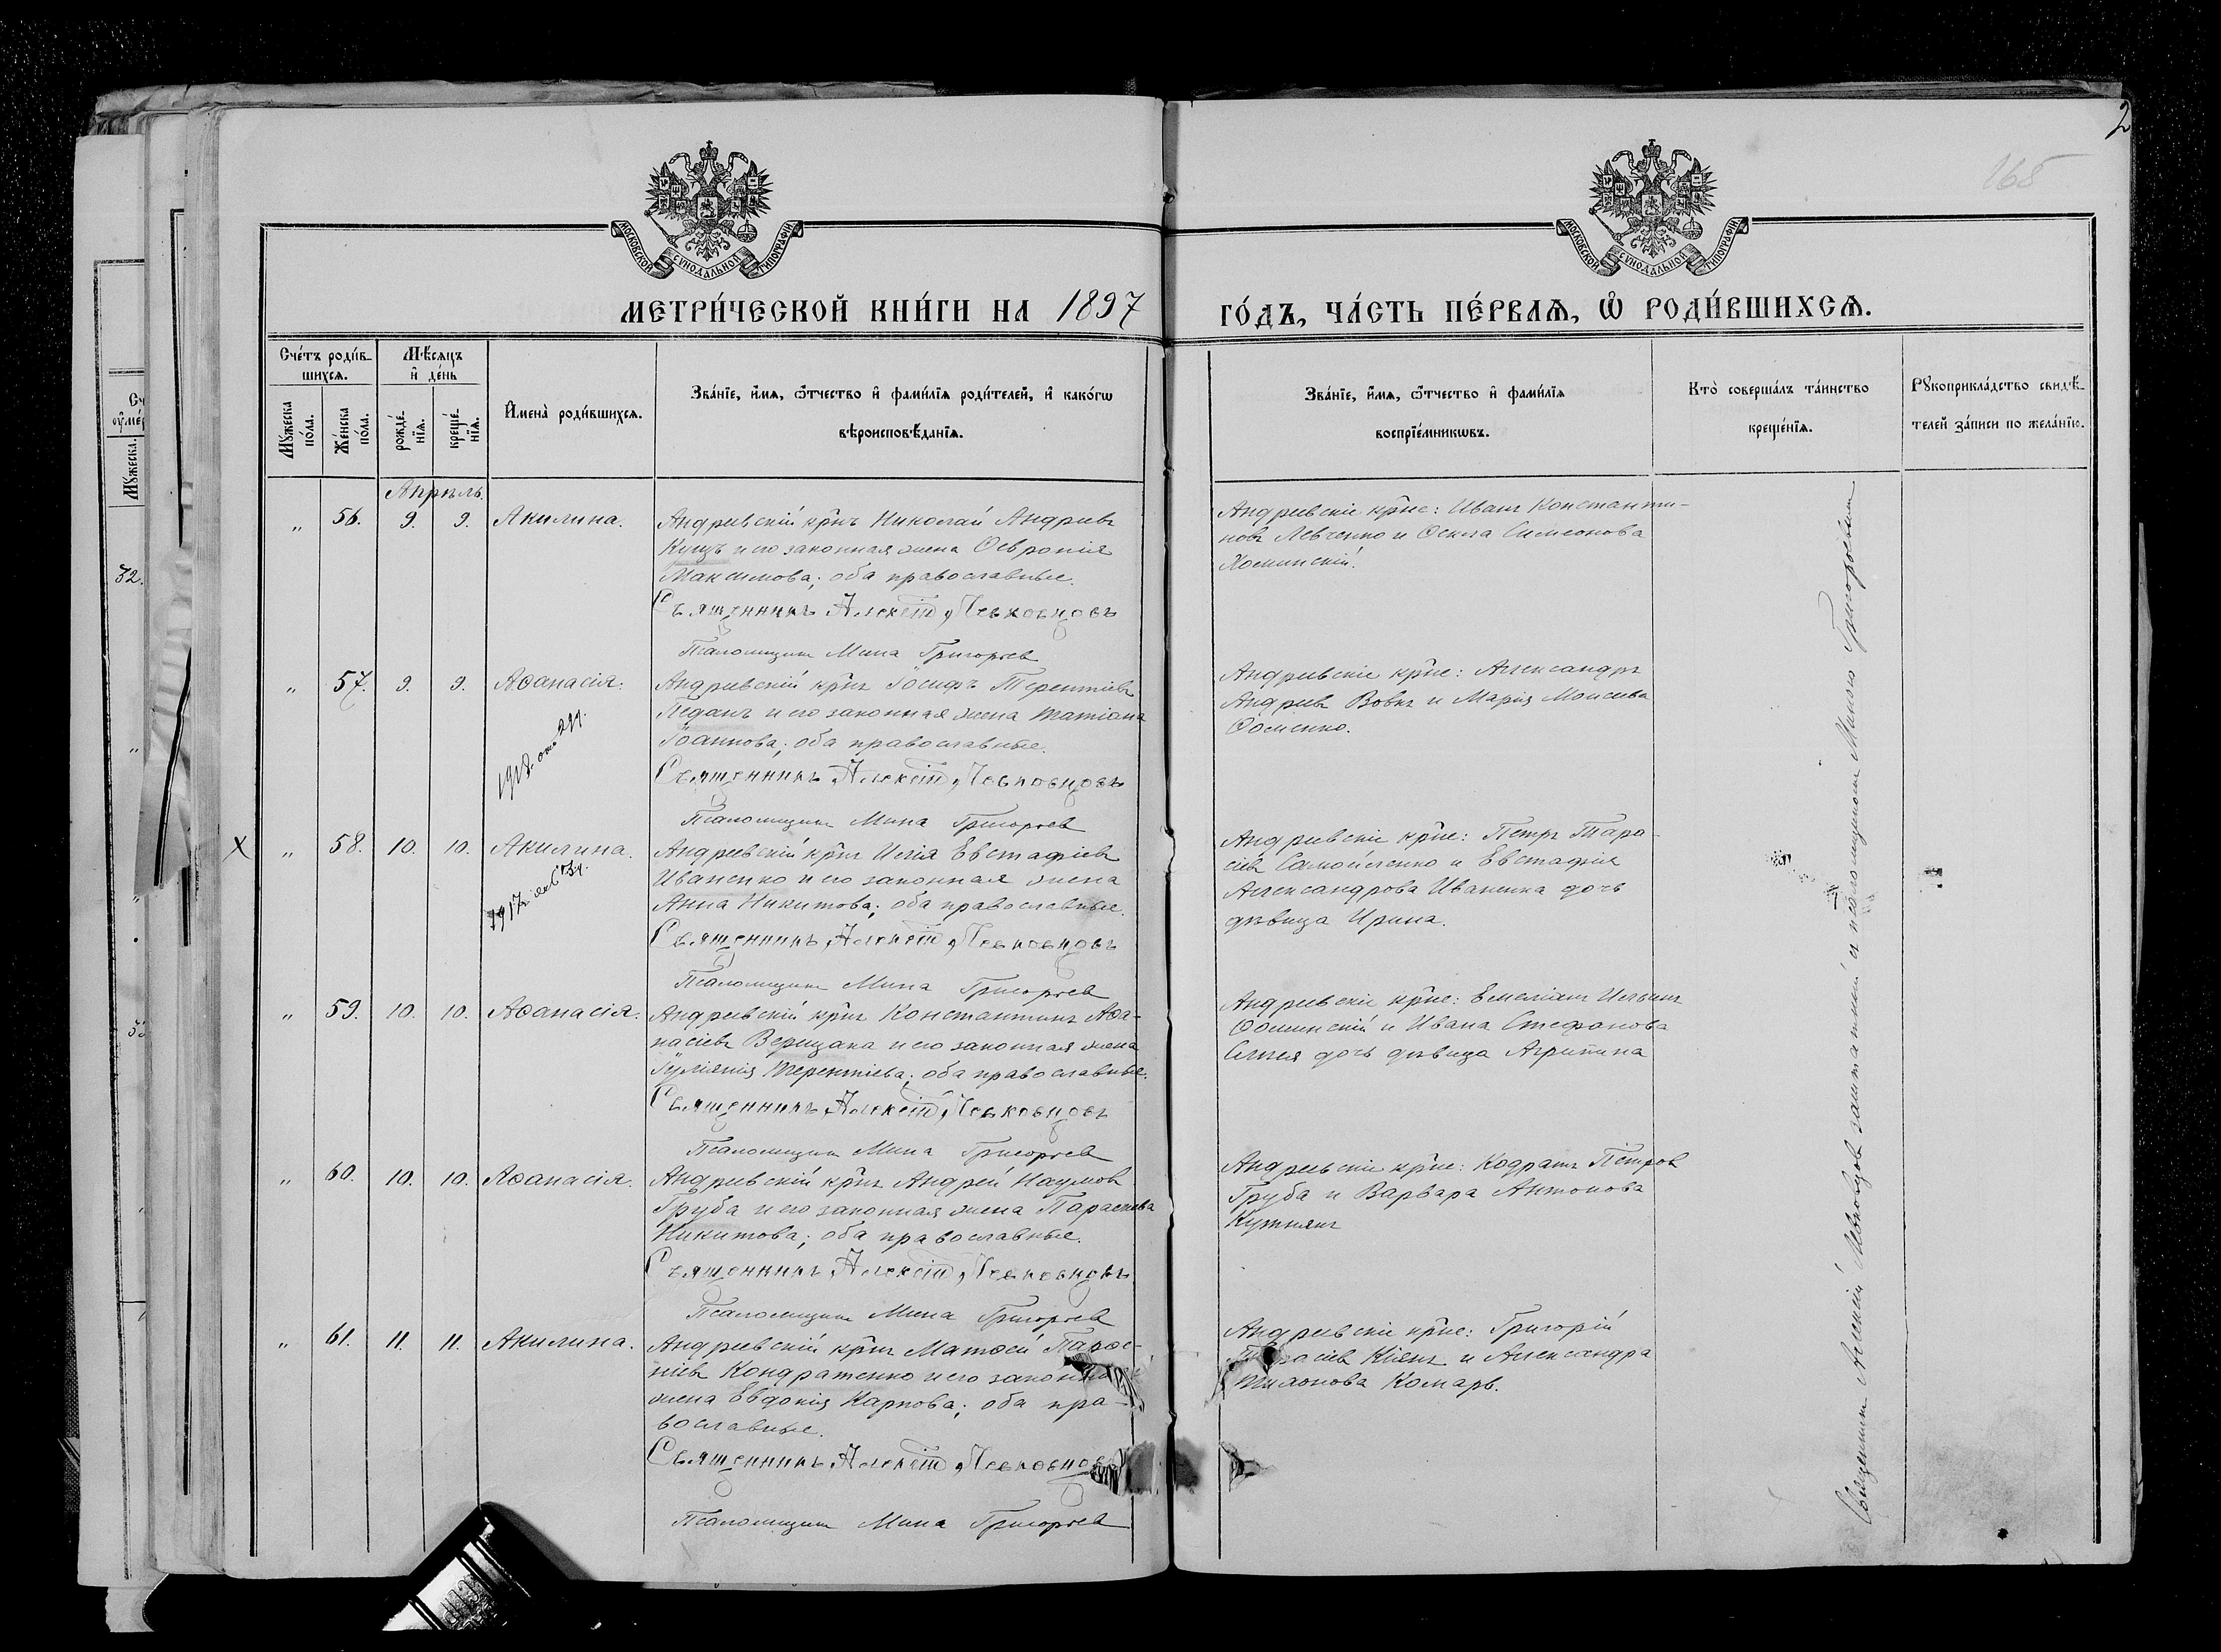 2
168
МОСКОВСКОЙ СѴНОДАЛЬНОЙ ТИПОГРАФІИ
МОСКОВСКОЙ СѴНОДАЛЬНОЙ ТИПОГРАФІИ
МЕТРИ́ЧЕСКОЙ КНИ́ГИ НА 1897
ГО́ДЪ, ЧА́СТЬ ПЕ́РВАѦ, Ѡ҆ РОДИ́ВШИХСѦ.
Сче́тъ роди́в-
шихсѧ.
Мѣ́сѧцъ
и҆ де́нь
Мꙋ́жеска
по́ла.
Же́нска
по́ла.
рожде́-
нїѧ.
креще́-
нїѧ.
И҆мена̀ роди́вшихсѧ.
Зва́нїе, и҆́мѧ, ѻ҆́тчество и҆ фами́лїѧ роди́телей, и҆ како́гѡ
вѣроисповѣ́данїѧ.
Зва́нїе, и҆́мѧ, ѻ҆́тчество и҆ фами́лїѧ
воспрїе́мникѡвъ.
Кто̀ соверша́лъ та́инство
креще́нїѧ.
Рꙋкоприкла́дство свидѣ́-
телей за́писи по жела́нїю.
Апрѣль.
" 56. 9. 9. Акилина.
Андреевскій кр̃нъ Николай Андреевъ
Куцъ и его законная жена Ѳевронія
Максимова; оба православные.
Священникъ Алексій Левковцовъ
Псаломщикъ Мина Григорьев
Андреевскіе кр̃не: Иванъ Константи-
новъ Левченко и Ѳекла Симеонова
Хоминскій.
" 57. 9. 9. Аѳанасія.
Андреевскій кр̃нъ Іосифъ Терентіевъ
Леданъ и его законная жена Татіана
Іоаннова; оба православные.
Священникъ Алексій Левковцовъ
Псаломщикъ Мина Григорьев
Андреевскіе кр̃не: Александръ
Андреев Вовкъ и Марія Моисеева
Ѳоменко.
Х " 58. 10. 10. Акилина.
Андреевскій кр̃нъ Илія Евстафіевъ
Иваненко и его законная жена
Анна Никитова; оба православные.
Священникъ Алексій Левковцовъ
Псаломщикъ Мина Григорьев
Андреевскіе кр̃не: Петръ Тара-
сіев Самойленко и Евстафія
Александрова Иваненка дочь
дѣвица Ирина.
" 59. 10. 10. Аѳанасія.
Андреевскій кр̃нъ Константинъ Аѳа-
насіевъ Верещака и его законная жена
Іуліянія Терентіева; оба православные.
Священникъ Алексій Левковцовъ
Псаломщикъ Мина Григорьев
Андреевскіе кр̃не: Емеліанъ Ильинъ
Ѳоминскій и Ивана Стефанова
дочь дѣвица Агрипина
" 60. 10. 10. Аѳанасія.
Андреевскій кр̃нъ Андрей Наумов
Груба и его законная жена Параскева
Никитова; оба православные.
Священникъ Алексій Левковцовъ
Псаломщикъ Мина Григорьев
Андреевскіе кр̃не: Кодратъ Петров
Груба и Варвара Антонова
" 61. 11. 11. Акилина.
Андреевскій кр̃нъ Матѳей
Кондратенко и его законная
жена Евдокія Карпова; оба пра-
вославные.
Священникъ Алексій Левковцовъ
Псаломщикъ Мина Григорьев
Андреевскіе кр̃не: Григорій
Кіянъ и Александра
Комарь.
Священник Алексій Левковцов с псаломщиком Миною Григорьевым
32.